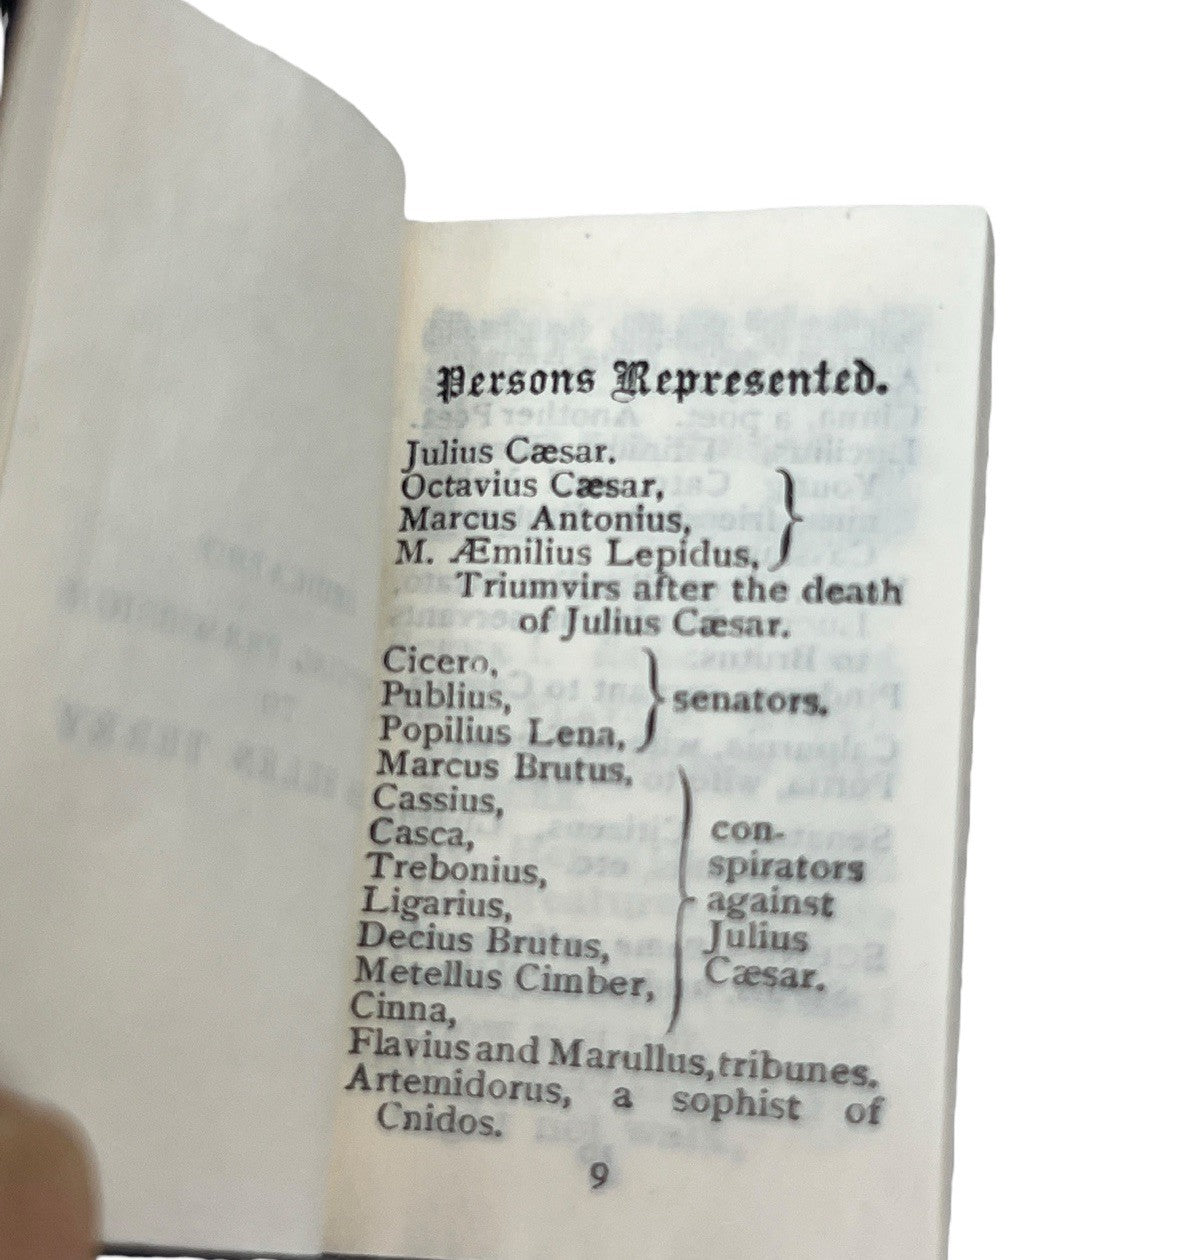 Persons Represented.
Julius Cæsar.
Octavius Cæsar,
Marcus Antonius,
M. Æmilius Lepidus,
Triumvirs after the death
of Julius Cæsar.
Cicero,
Publius,
Popilius Lena,
senators.
Marcus Brutus,
Cassius,
Casca,
Trebonius,
Ligarius,
Decius Brutus,
Metellus Cimber,
Cinna,
con-
spirators
against
Julius
Cæsar.
Flavius and Marullus, tribunes.
Artemidorus, a sophist of
Cnidos.
9